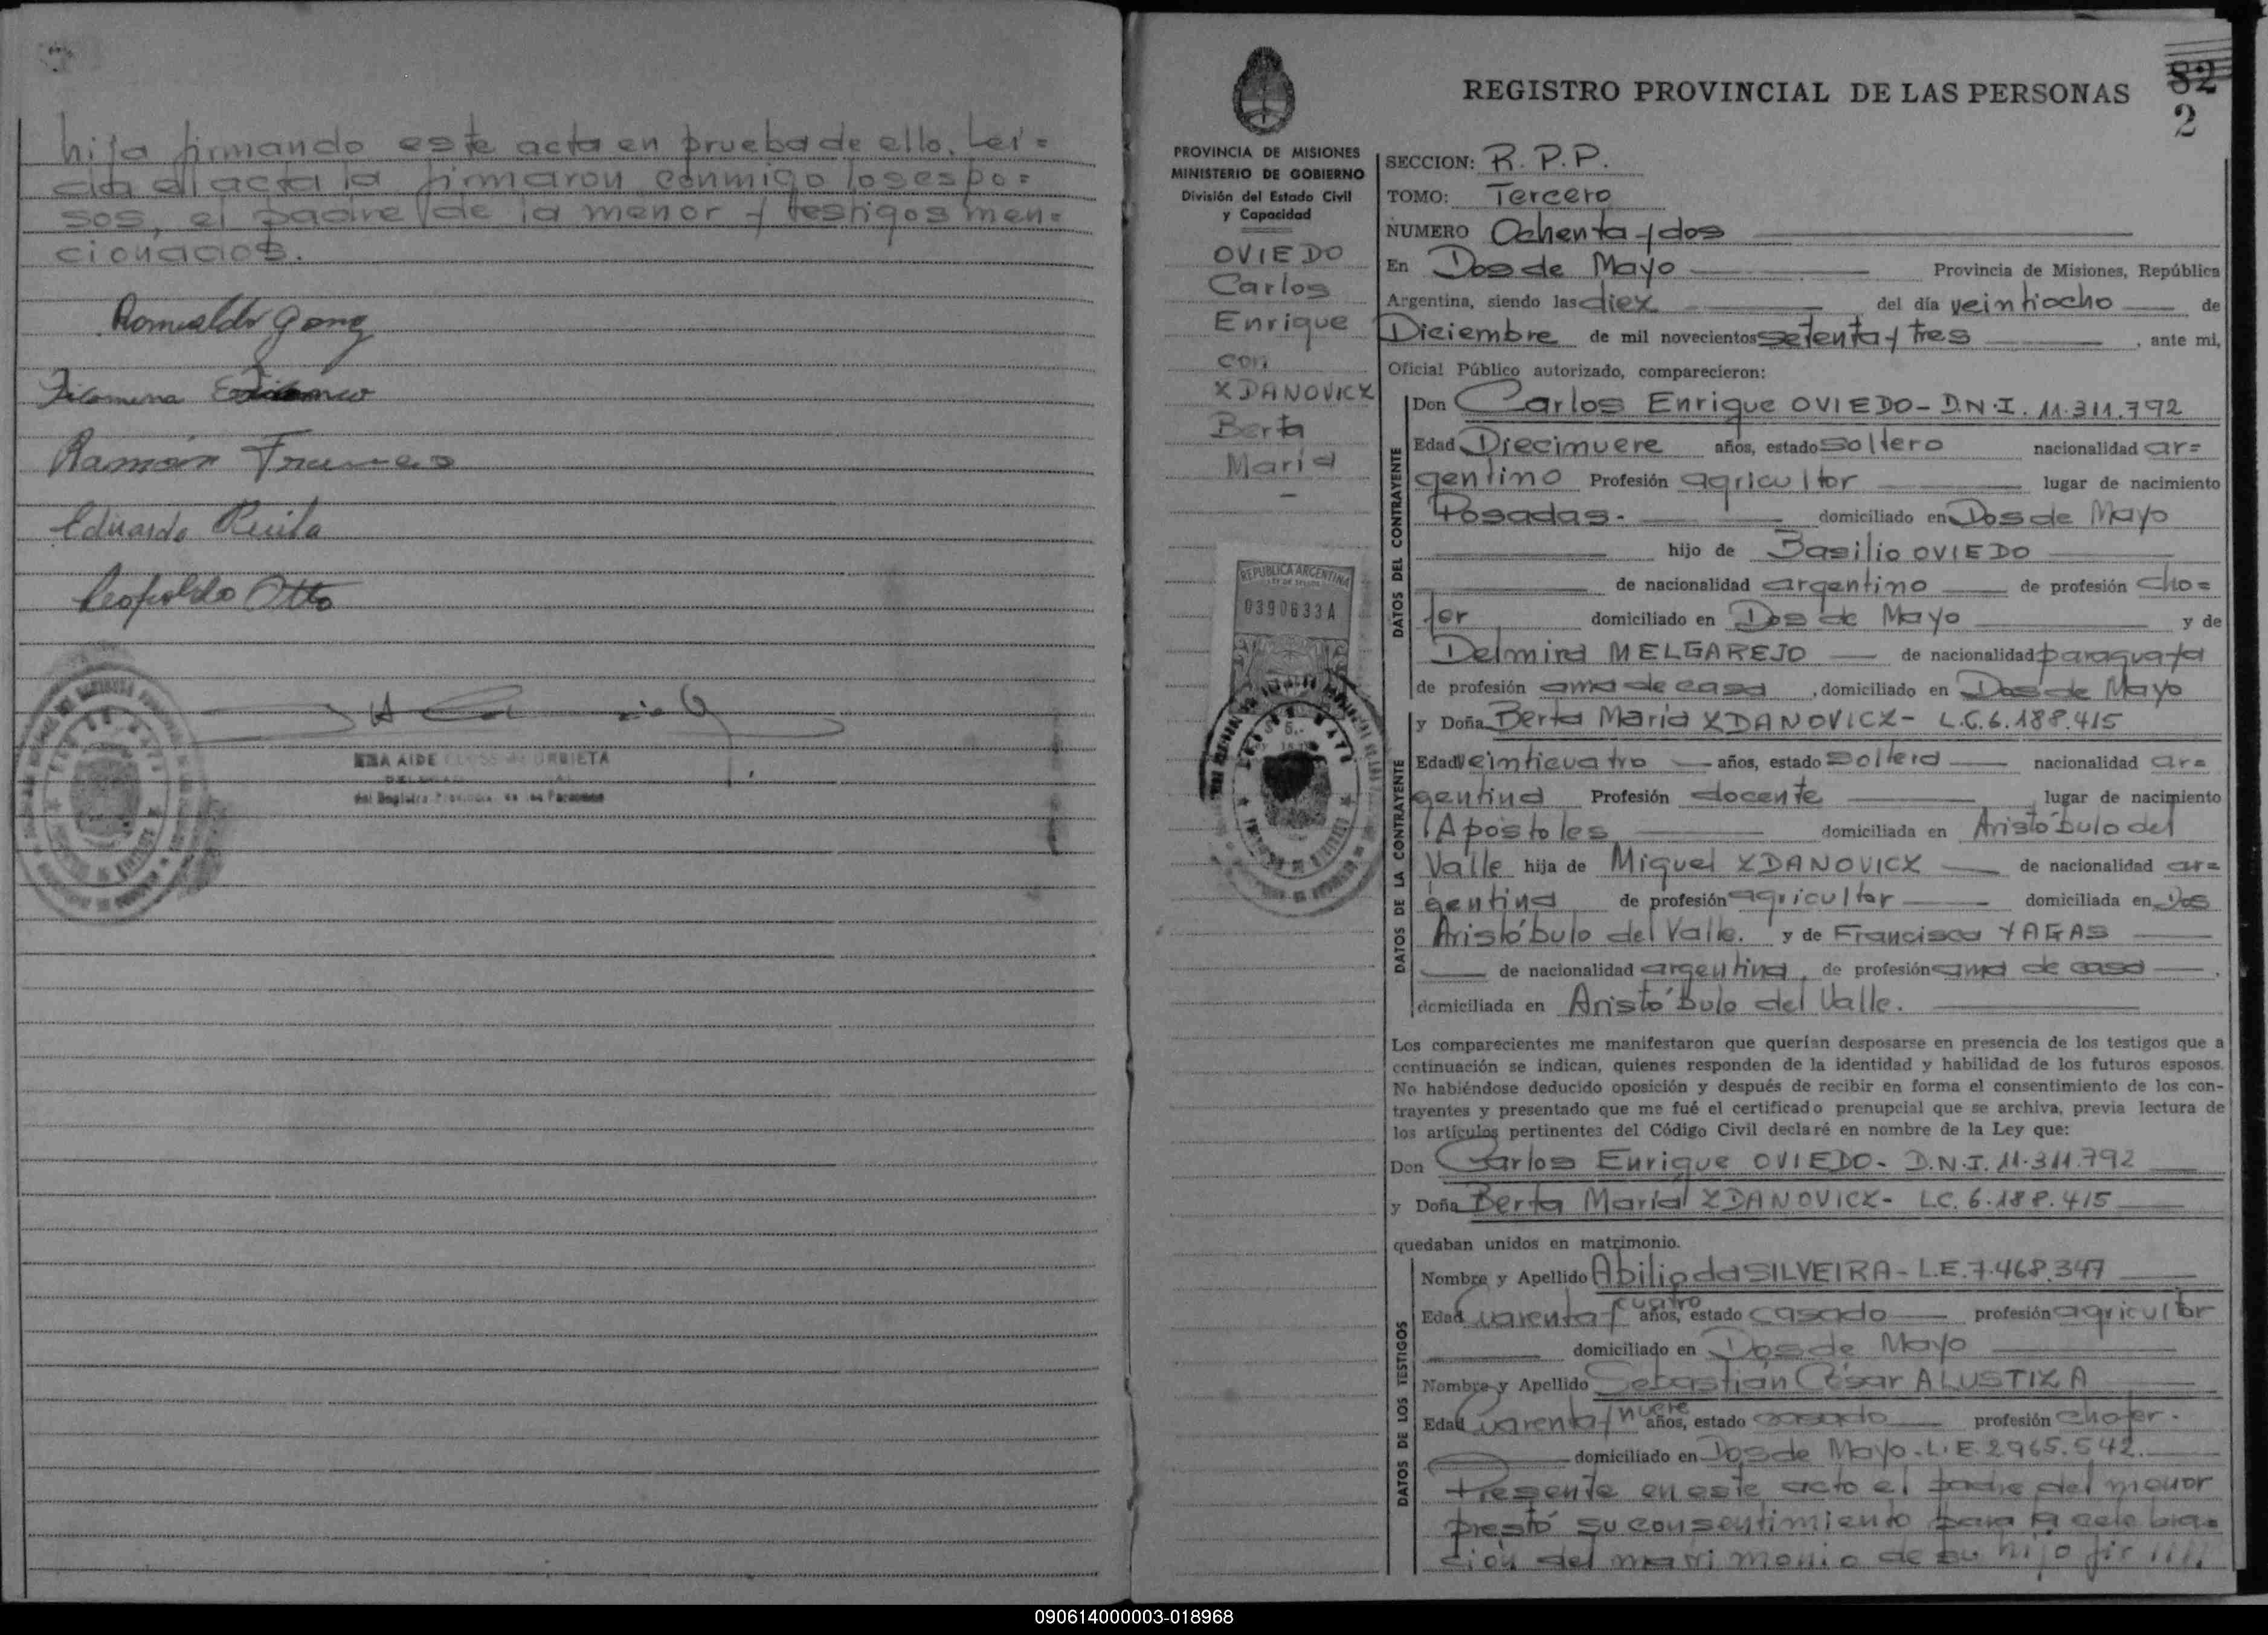 hija firmando este acta en prueba de ello. Leí=
da el acta la firmaron conmigo los espo=
sos, el padre de la menor y testigos men=
cionados.
Romualdo
Filomena
Ramón
Eduardo
Leopoldo Otto
DE URBIETA
del Registro Provincial de las Personas
82
2
REGISTRO PROVINCIAL DE LAS PERSONAS
PROVINCIA DE MISIONES
MINISTERIO DE GOBIERNO
División del Estado Civil
y Capacidad
OVIEDO
Carlos
Enrique
con
ZDANOVICZ
Berta
María
REPUBLICA ARGENTINA
0390633A
SECCION: R. P. P.
TOMO: Tercero
NUMERO Ochenta y dos
En Dos de Mayo Provincia de Misiones, República
Argentina, siendo las diez del día veintiocho de
Diciembre de mil novecientos setenta y tres, ante mi,
Oficial Público autorizado, comparecieron:
DATOS DEL CONTRAYENTE
Don Carlos Enrique OVIEDO - D.N.I. 11.311.792
Edad Diecinueve años, estado soltero nacionalidad ar=
gentino Profesión agricultor lugar de nacimiento
Posadas. domiciliado en Dos de Mayo
hijo de Basilio OVIEDO
de nacionalidad argentino de profesión cho=
fer domiciliado en Dos de Mayo y de
Delmira MELGAREJO de nacionalidad paraguaya
de profesión ama de casa, domiciliado en Dos de Mayo
DATOS DE LA CONTRAYENTE
y Doña Berta María ZDANOVICZ - L.C. 6.188.415
Edad Veinticuatro años, estado soltera nacionalidad ar=
gentina Profesión docente lugar de nacimiento
Apóstoles domiciliada en Aristóbulo del
Valle hija de Miguel ZDANOVICZ de nacionalidad ar=
gentina de profesión agricultor domiciliada en Dos
Aristóbulo del Valle. y de Francisca YAGAS
de nacionalidad argentina, de profesión ama de casa,
domiciliada en Aristóbulo del Valle.
Los comparecientes me manifestaron que querían desposarse en presencia de los testigos que a
continuación se indican, quienes responden de la identidad y habilidad de los futuros esposos.
No habiéndose deducido oposición y después de recibir en forma el consentimiento de los con-
trayentes y presentado que me fué el certificado prenupcial que se archiva, previa lectura de
los artículos pertinentes del Código Civil declaré en nombre de la Ley que:
Don Carlos Enrique OVIEDO - D.N.I. 11.311.792
y Doña Berta María ZDANOVICZ - L.C. 6.188.415
quedaban unidos en matrimonio.
DATOS DE LOS TESTIGOS
Nombre y Apellido Abilio da SILVEIRA - L.E. 7.468.347
Edad Cuarenta y cuatro años, estado casado profesión agricultor
domiciliado en Dos de Mayo
Nombre y Apellido Sebastián César ALUSTIZA
Edad Cuarenta y nueve años, estado casado profesión chofer.
domiciliado en Dos de Mayo - L.E. 2.965.542.
Presente en este acto el padre del menor
prestó su consentimiento para la celebra=
ción del matrimonio de su hijo fir
090614000003-018968